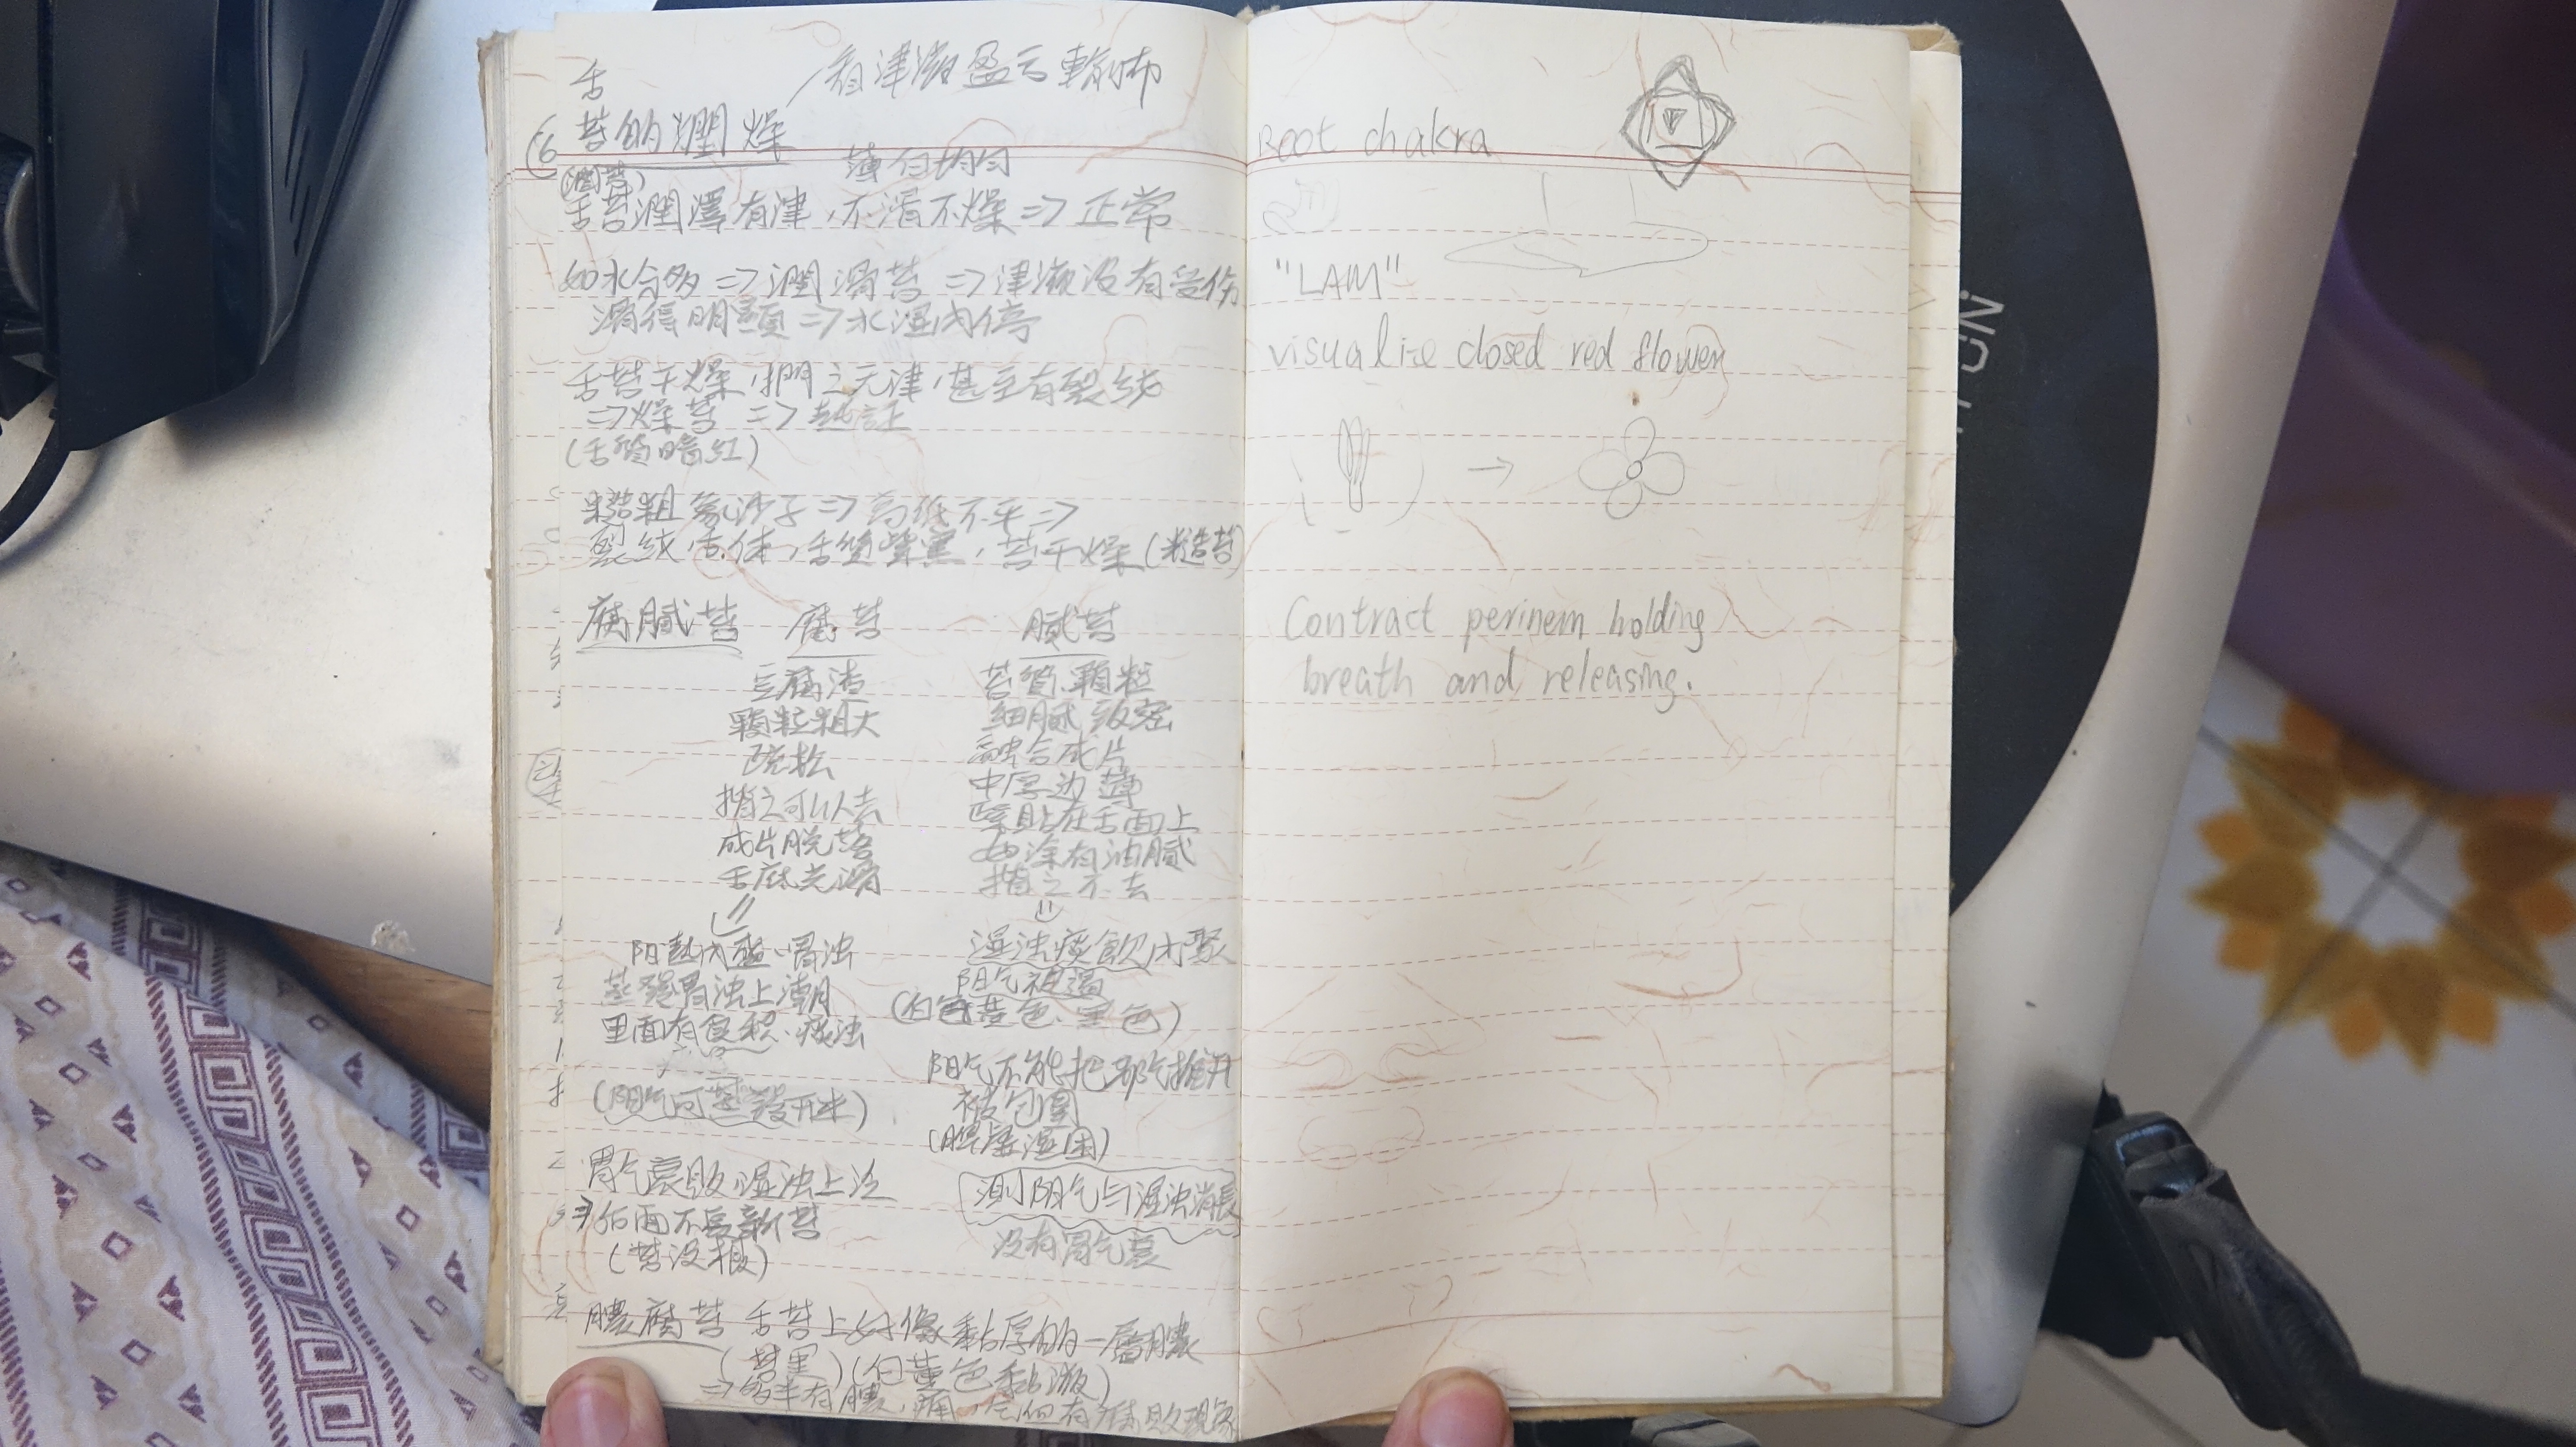 看津液盈亏輸布
舌
(6 苔的潤燥
薄白均匀
(潤苔)
舌苔潤澤有津,不滑不燥⇒正常
如水分多⇒潤滑苔⇒津液没有受伤
滑得明顯⇒水湿内停
舌苔干燥,捫之无津,甚至有裂纹
⇒燥苔⇒热証
(舌質暗红)
糙粗象沙子⇒高低不平⇒
裂紋舌体,舌質紫黑,苔干燥(糙苔)
腐膩苔 腐苔 膩苔
豆腐渣 苔質顆粒
顆粒粗大 細膩致密
疏松 融合成片
中厚边薄
揩之可以去 緊貼在舌面上
成片脱落 如涂有油膩
舌底光滑 揩之不去
⇓ ⇓
阳热内盛,胃浊 湿浊痰飲内聚
蒸發胃浊上潮 阳气祖遏
里面有食积、痰浊 (白色黄色、黑色)
阳气不能把邪气推开
(阳气可蒸發开来) 被包圍
(脾虚湿困)
胃气衰败,湿浊上泛 測阳气与湿浊消長
后面不長新苔 没有胃气衰
(苔没根)
膿腐苔 舌苔上好像黏厚的一層膿
(苔黑)(白黄色黏液)
⇒多半有膿,痈,
Root chakra
"LAM"
visualize closed red flower
→
Contract perinem holding
breath and releasing.
NUTION